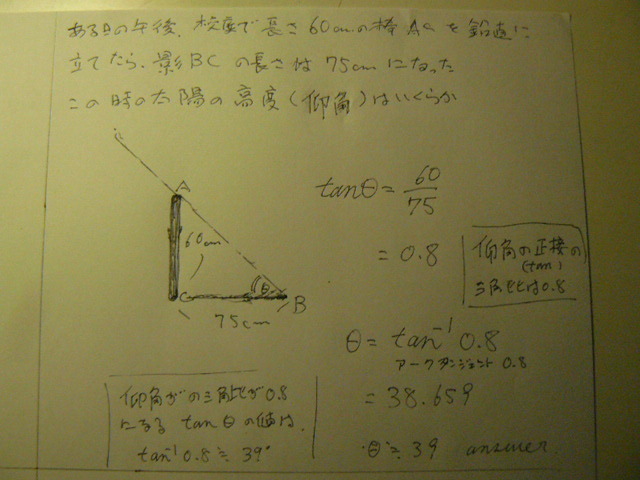 ある日の午後、校庭で長さ60cmの棒ACを鉛直に
立てたら、影BCの長さは75cmになった
この時の太陽の高度(仰角)はいくらか
A
60cm
C
θ
B
75cm
tanθ = 60/75
= 0.8
仰角の正接の
(tan)
三角比は0.8
θ = tan⁻¹ 0.8
アークタンジェント 0.8
= 38.659
θ≒39 answer
仰角がの三角比が0.8
になる tanθの値は、
tan⁻¹ 0.8≒39°